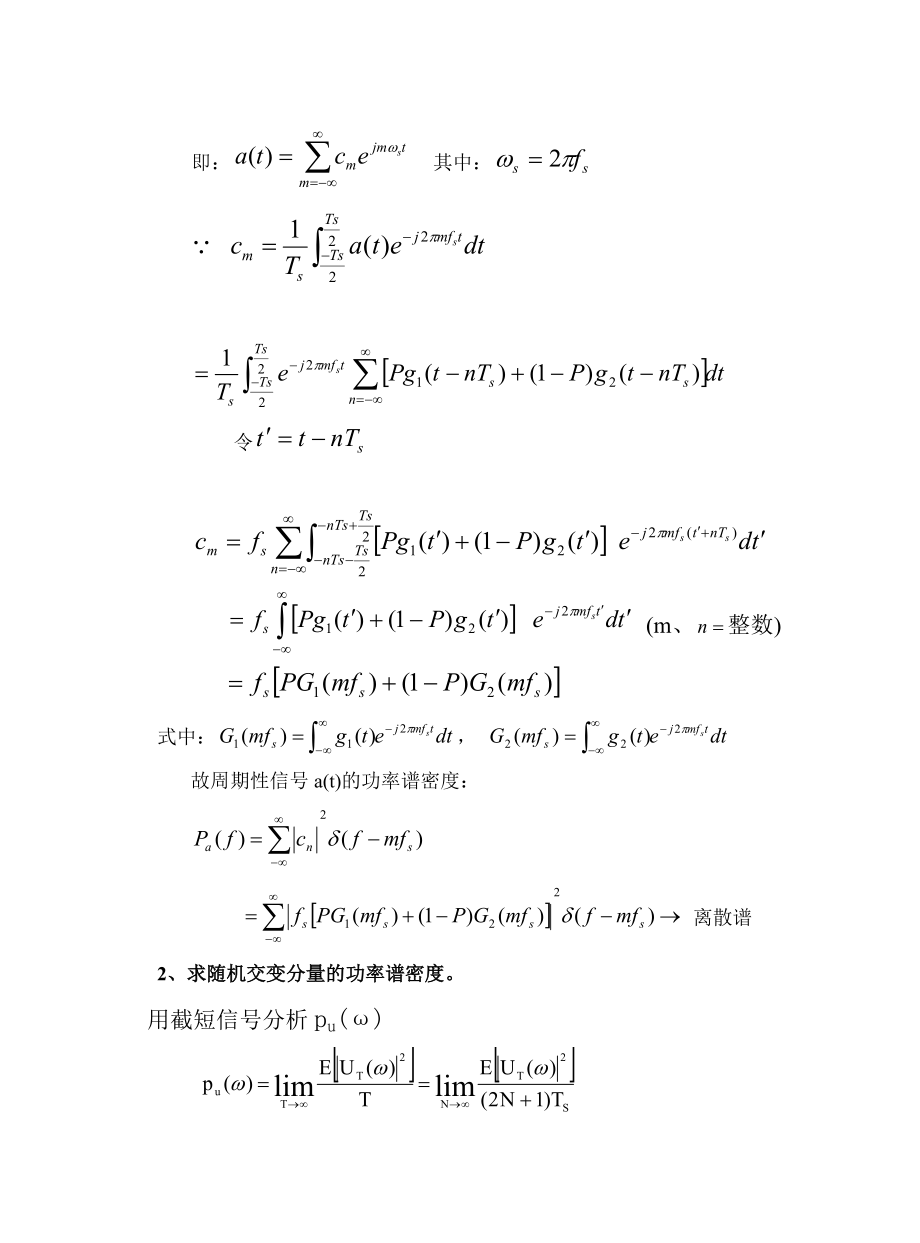 即：a(t) = ∑_{m=−∞}^{∞} c_m e^{jmω_s t} 其中：ω_s = 2πf_s
∵ c_m = \frac{1}{T_s} ∫_{−\frac{Ts}{2}}^{\frac{Ts}{2}} a(t)e^{−j2πmf_s t} dt
= \frac{1}{T_s} ∫_{−\frac{Ts}{2}}^{\frac{Ts}{2}} e^{−j2πmf_s t} ∑_{n=−∞}^{∞} [Pg_1(t − nT_s) + (1 − P)g_2(t − nT_s)]dt
令 t′ = t − nT_s
c_m = f_s ∑_{n=−∞}^{∞} ∫_{−nTs−\frac{Ts}{2}}^{−nTs+\frac{Ts}{2}} [Pg_1(t′) + (1 − P)g_2(t′)] e^{−j2πmf_s(t′+nT_s)} dt′
= f_s ∫_{−∞}^{∞} [Pg_1(t′) + (1 − P)g_2(t′)] e^{−j2πmf_s t′} dt′ (m、n = 整数)
= f_s[PG_1(mf_s) + (1 − P)G_2(mf_s)]
式中：G_1(mf_s) = ∫_{−∞}^{∞} g_1(t)e^{−j2πmf_s t} dt， G_2(mf_s) = ∫_{−∞}^{∞} g_2(t)e^{−j2πmf_s t} dt
故周期性信号 a(t)的功率谱密度：
P_a(f) = ∑_{−∞}^{∞} |c_n|^2 δ(f − mf_s)
= ∑_{−∞}^{∞} |f_s[PG_1(mf_s) + (1 − P)G_2(mf_s)]|^2 δ(f − mf_s) → 离散谱
2、求随机交变分量的功率谱密度。
用截短信号分析 p_u(ω)
p_u(ω) = lim_{T→∞} \frac{E[|U_T(ω)|^2]}{T} = lim_{N→∞} \frac{E[|U_T(ω)|^2]}{(2N + 1)T_S}